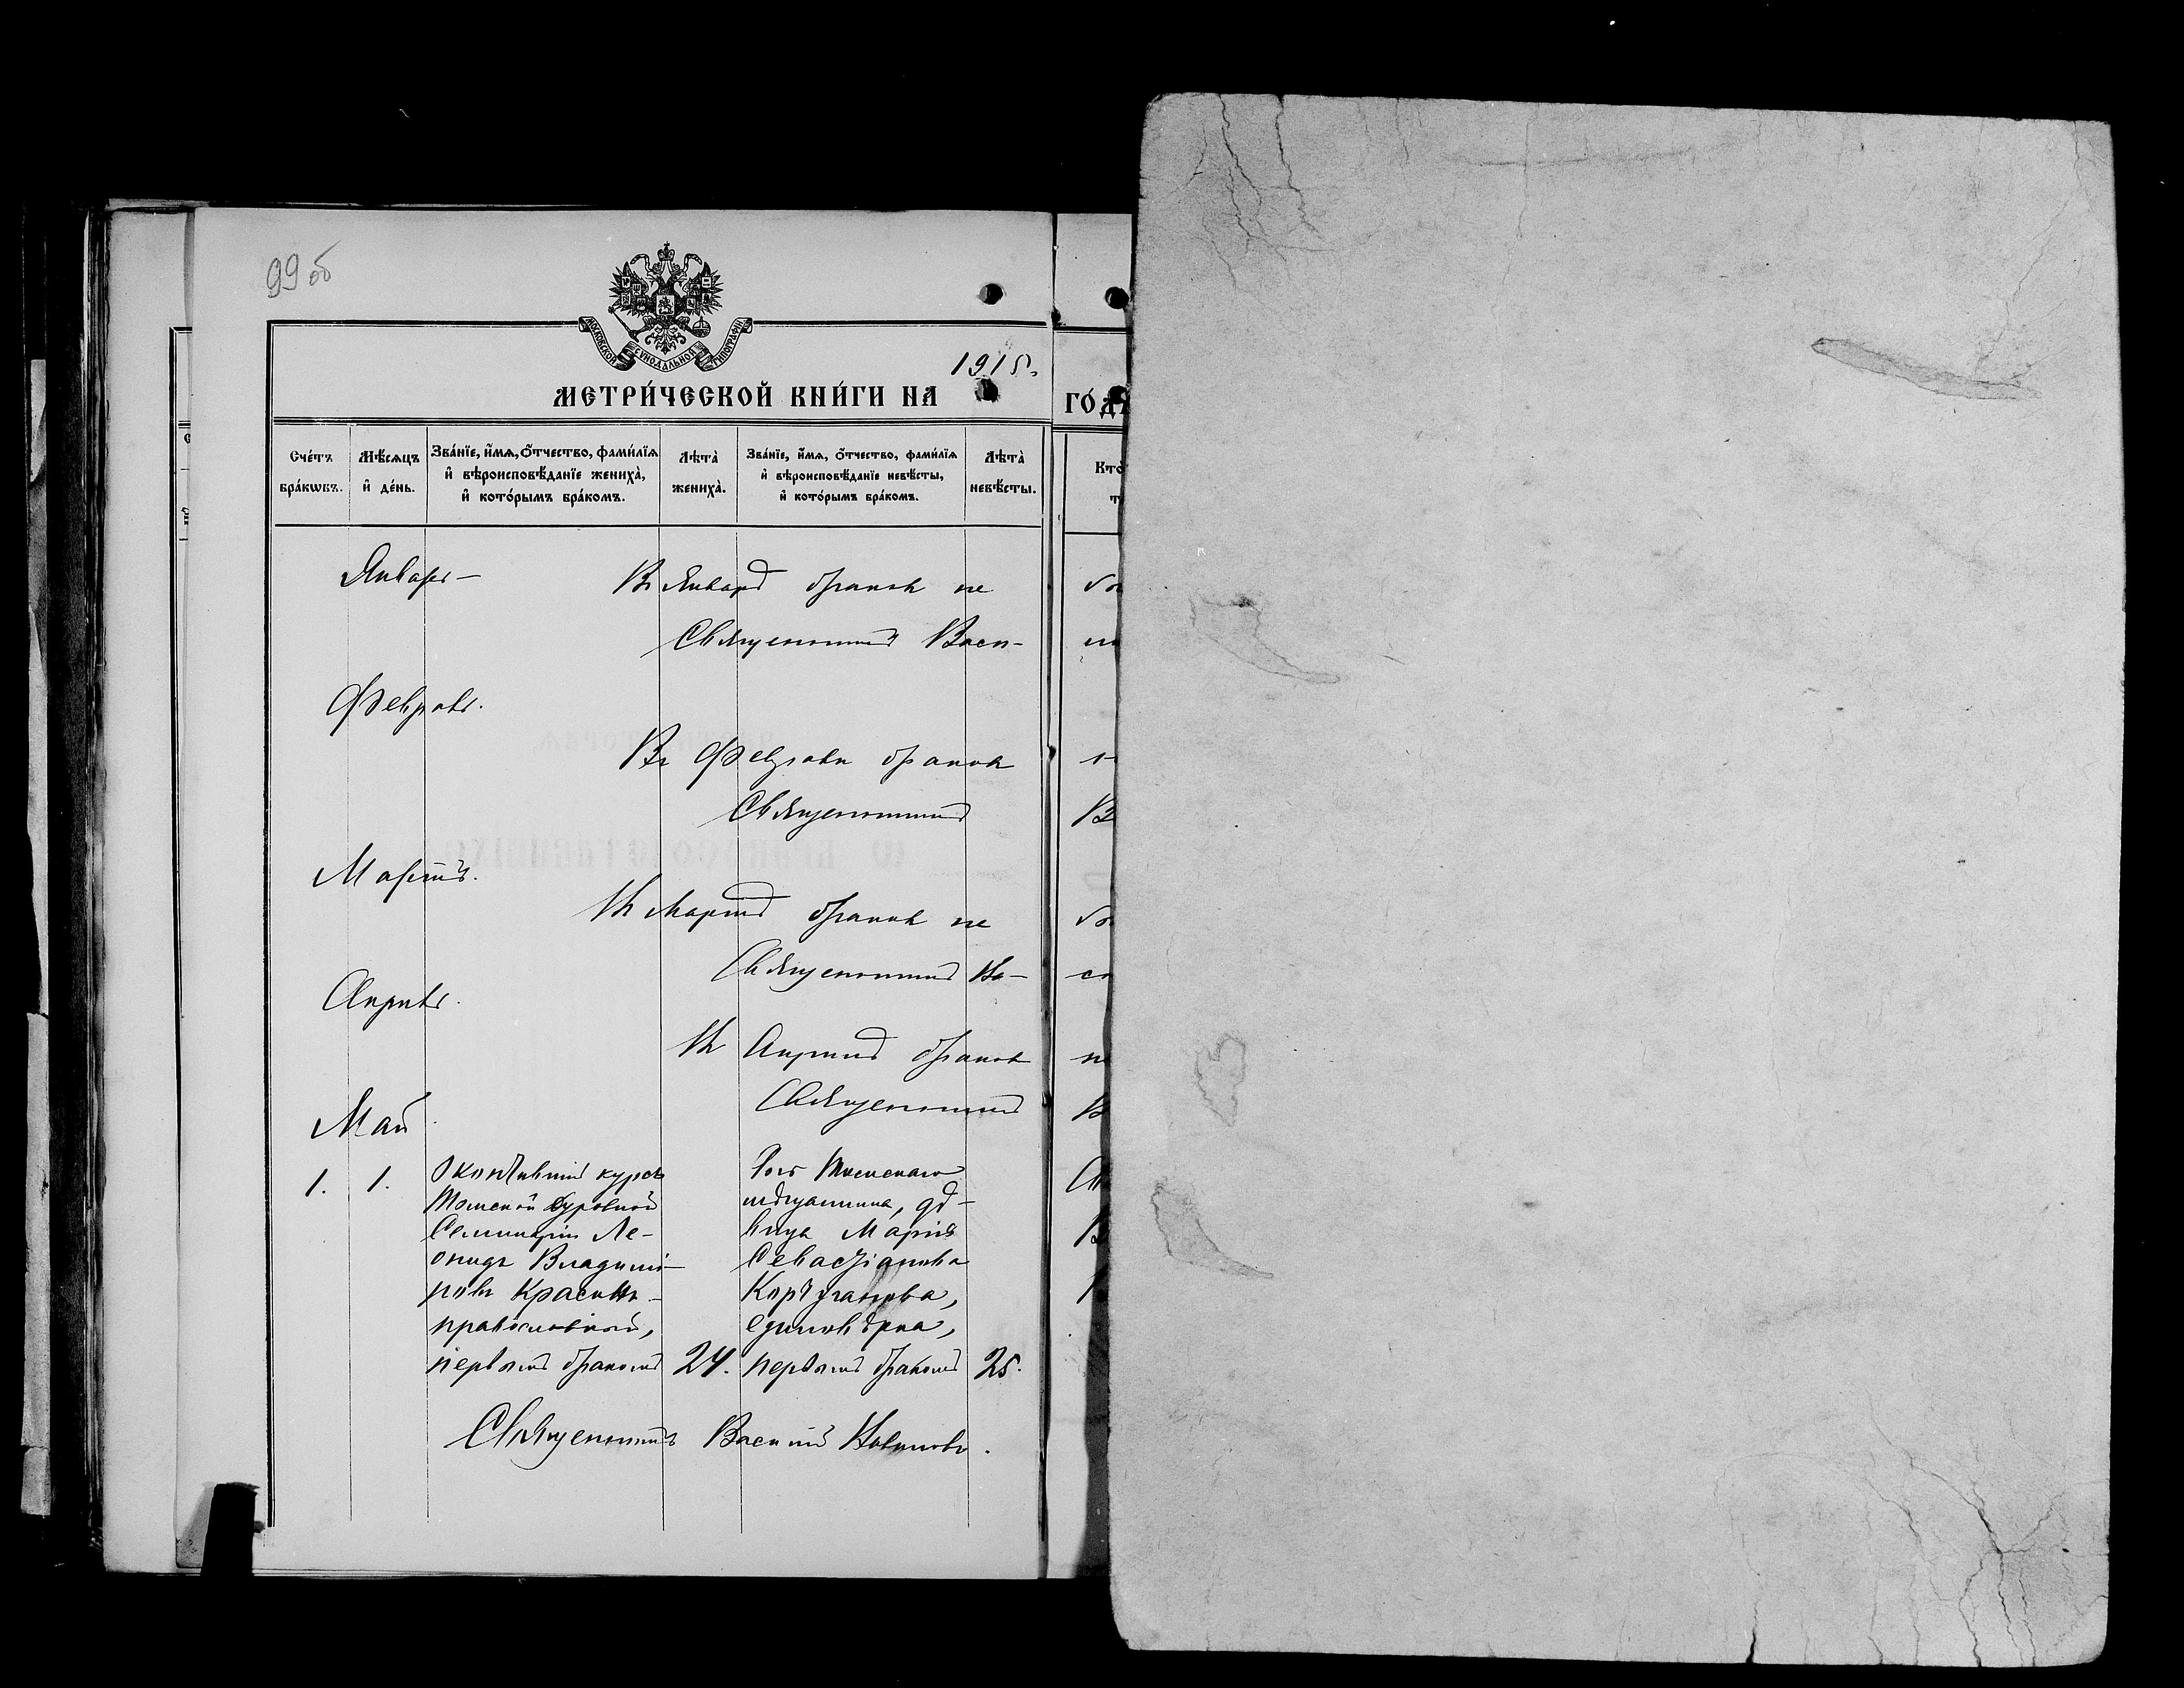 99 об
МОСКОВСКОЙ СѴНОДАЛЬНОЙ ТИПОГРАФІИ
1915.
МЕТРИ́ЧЕСКОЙ КНИ́ГИ НА ГО́ДЪ
Сче́тъ бра́кѡвъ.
Мѣ́сѧцъ и҆ де́нь.
Зва́нїе, и҆́мѧ, ѻ҆́тчество, фамилі́ѧ и҆ вѣроисповѣ́данїе жениха̀, и҆ кото́рымъ бра́комъ.
Лѣта̀ жениха̀.
Зва́нїе, и҆́мѧ, ѻ҆́тчество, фамилі́ѧ и҆ вѣроисповѣ́данїе невѣ́сты, и҆ кото́рымъ бра́комъ.
Лѣта̀ невѣ́сты.
Кто̀
Январь
Въ Январѣ браков не
Священникъ Васи-
Февраль.
Въ Февралѣ браков
Священникъ
Мартъ.
Въ Мартѣ браков не
Священникъ Ва-
Апрель.
Въ Апрелѣ браков
Священникъ
Май
1. 1.
Окончивший курсъ
Томской Духовной
Семинаріи Ле-
онидъ Владимі-
ровъ
православный,
первымъ бракомъ 24.
Томскаго
мѣщанина, дѣ-
вица Марія
Севастіанова
единовѣрка,
первымъ бракомъ 25.
Священникъ Василій